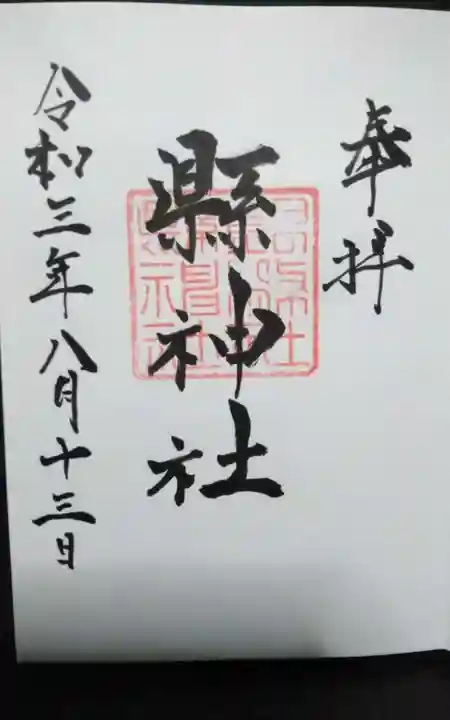 奉拝
縣神社
令和三年八月十三日